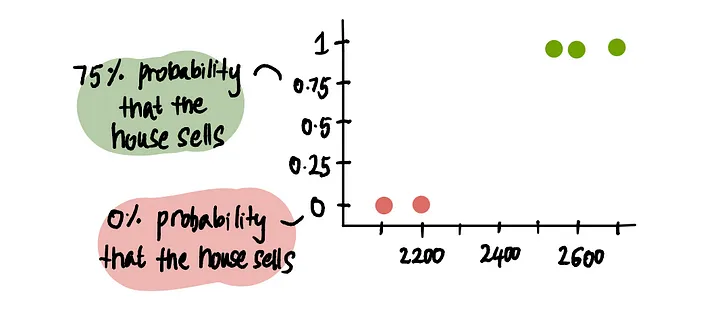 75% probability
that the
house sells
0% probability
that the house sells
1
0.75
0.5
0.25
0
2200 2400 2600